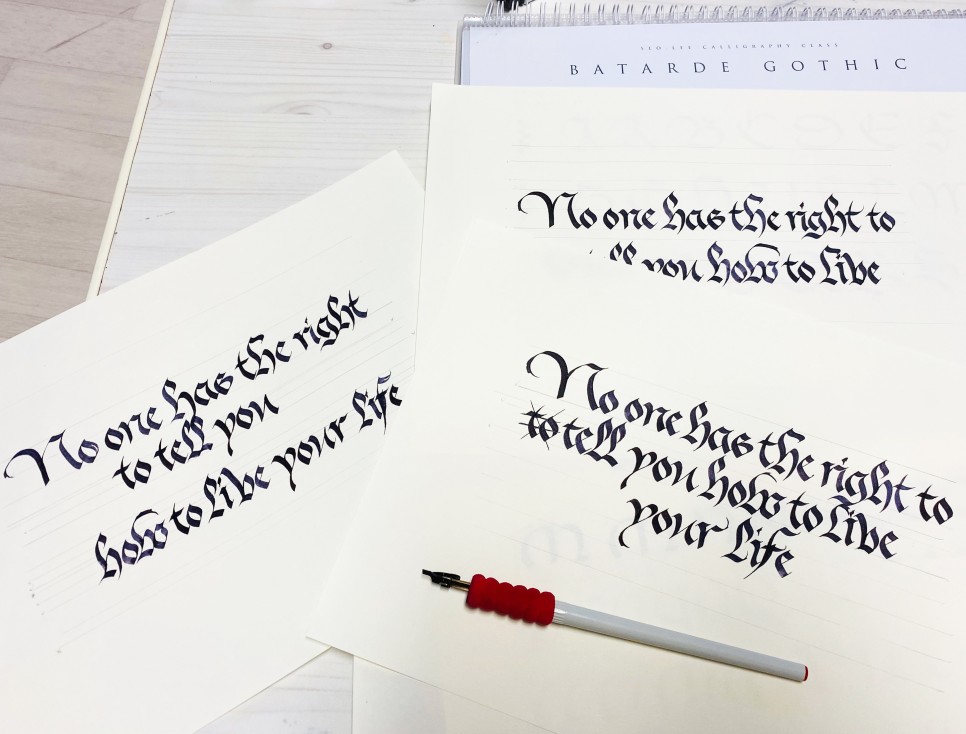 SEO LEE CALLIGRAPHY CLASS
BATARDE GOTHIC
No one has the right to
you how to live
No one has the right
to tell you
how to live your life
No one has the right to
to tell you how to live
your life